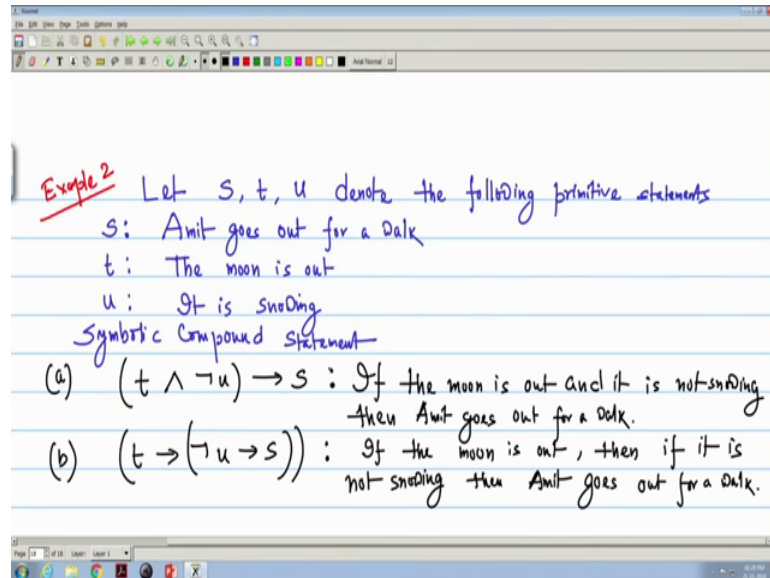 Journal
File Edit View Page Tools Options Help
Arial Normal 12
Example 2
Let s, t, u denote the following primitive statements
s: Amit goes out for a walk
t: The moon is out
u: It is snowing
Symbolic Compound statement
(a) (t ∧ ¬u) → s : If the moon is out and it is not snowing
then Amit goes out for a walk.
(b) (t → (¬u → s)) : If the moon is out, then if it is
not snowing then Amit goes out for a walk.
Page 18 of 18 Layer: Layer 1